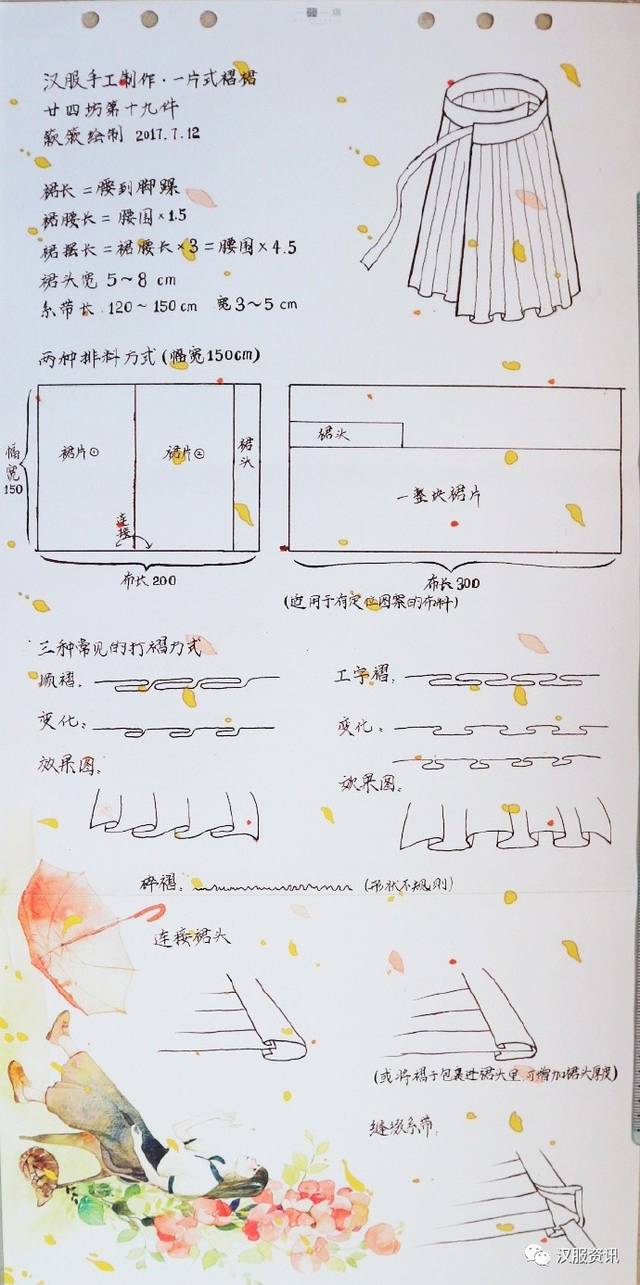 汉服手工制作·一片式褶裙
廿四坊第十九件
簌簌绘制 2017.7.12
裙长=腰到脚踝
裙腰长=腰围×1.5
裙摆长=裙腰长×3=腰围×4.5
裙头宽 5~8 cm
系带长 120~150cm 宽3~5cm
两种排料方式(幅宽150cm)
幅宽150
裙片①
裙片②
裙头
连接
布长200
裙头
一整块裙片
布长300
(适用于有定位图案的布料)
三种常见的打褶方式
顺褶:
变化:
效果图:
工字褶:
变化:
效果图:
碎褶: (形状不规则)
连接裙头
(或将褶子包裹进裙头里,可增加裙头厚度)
缝缀系带:
汉服资讯